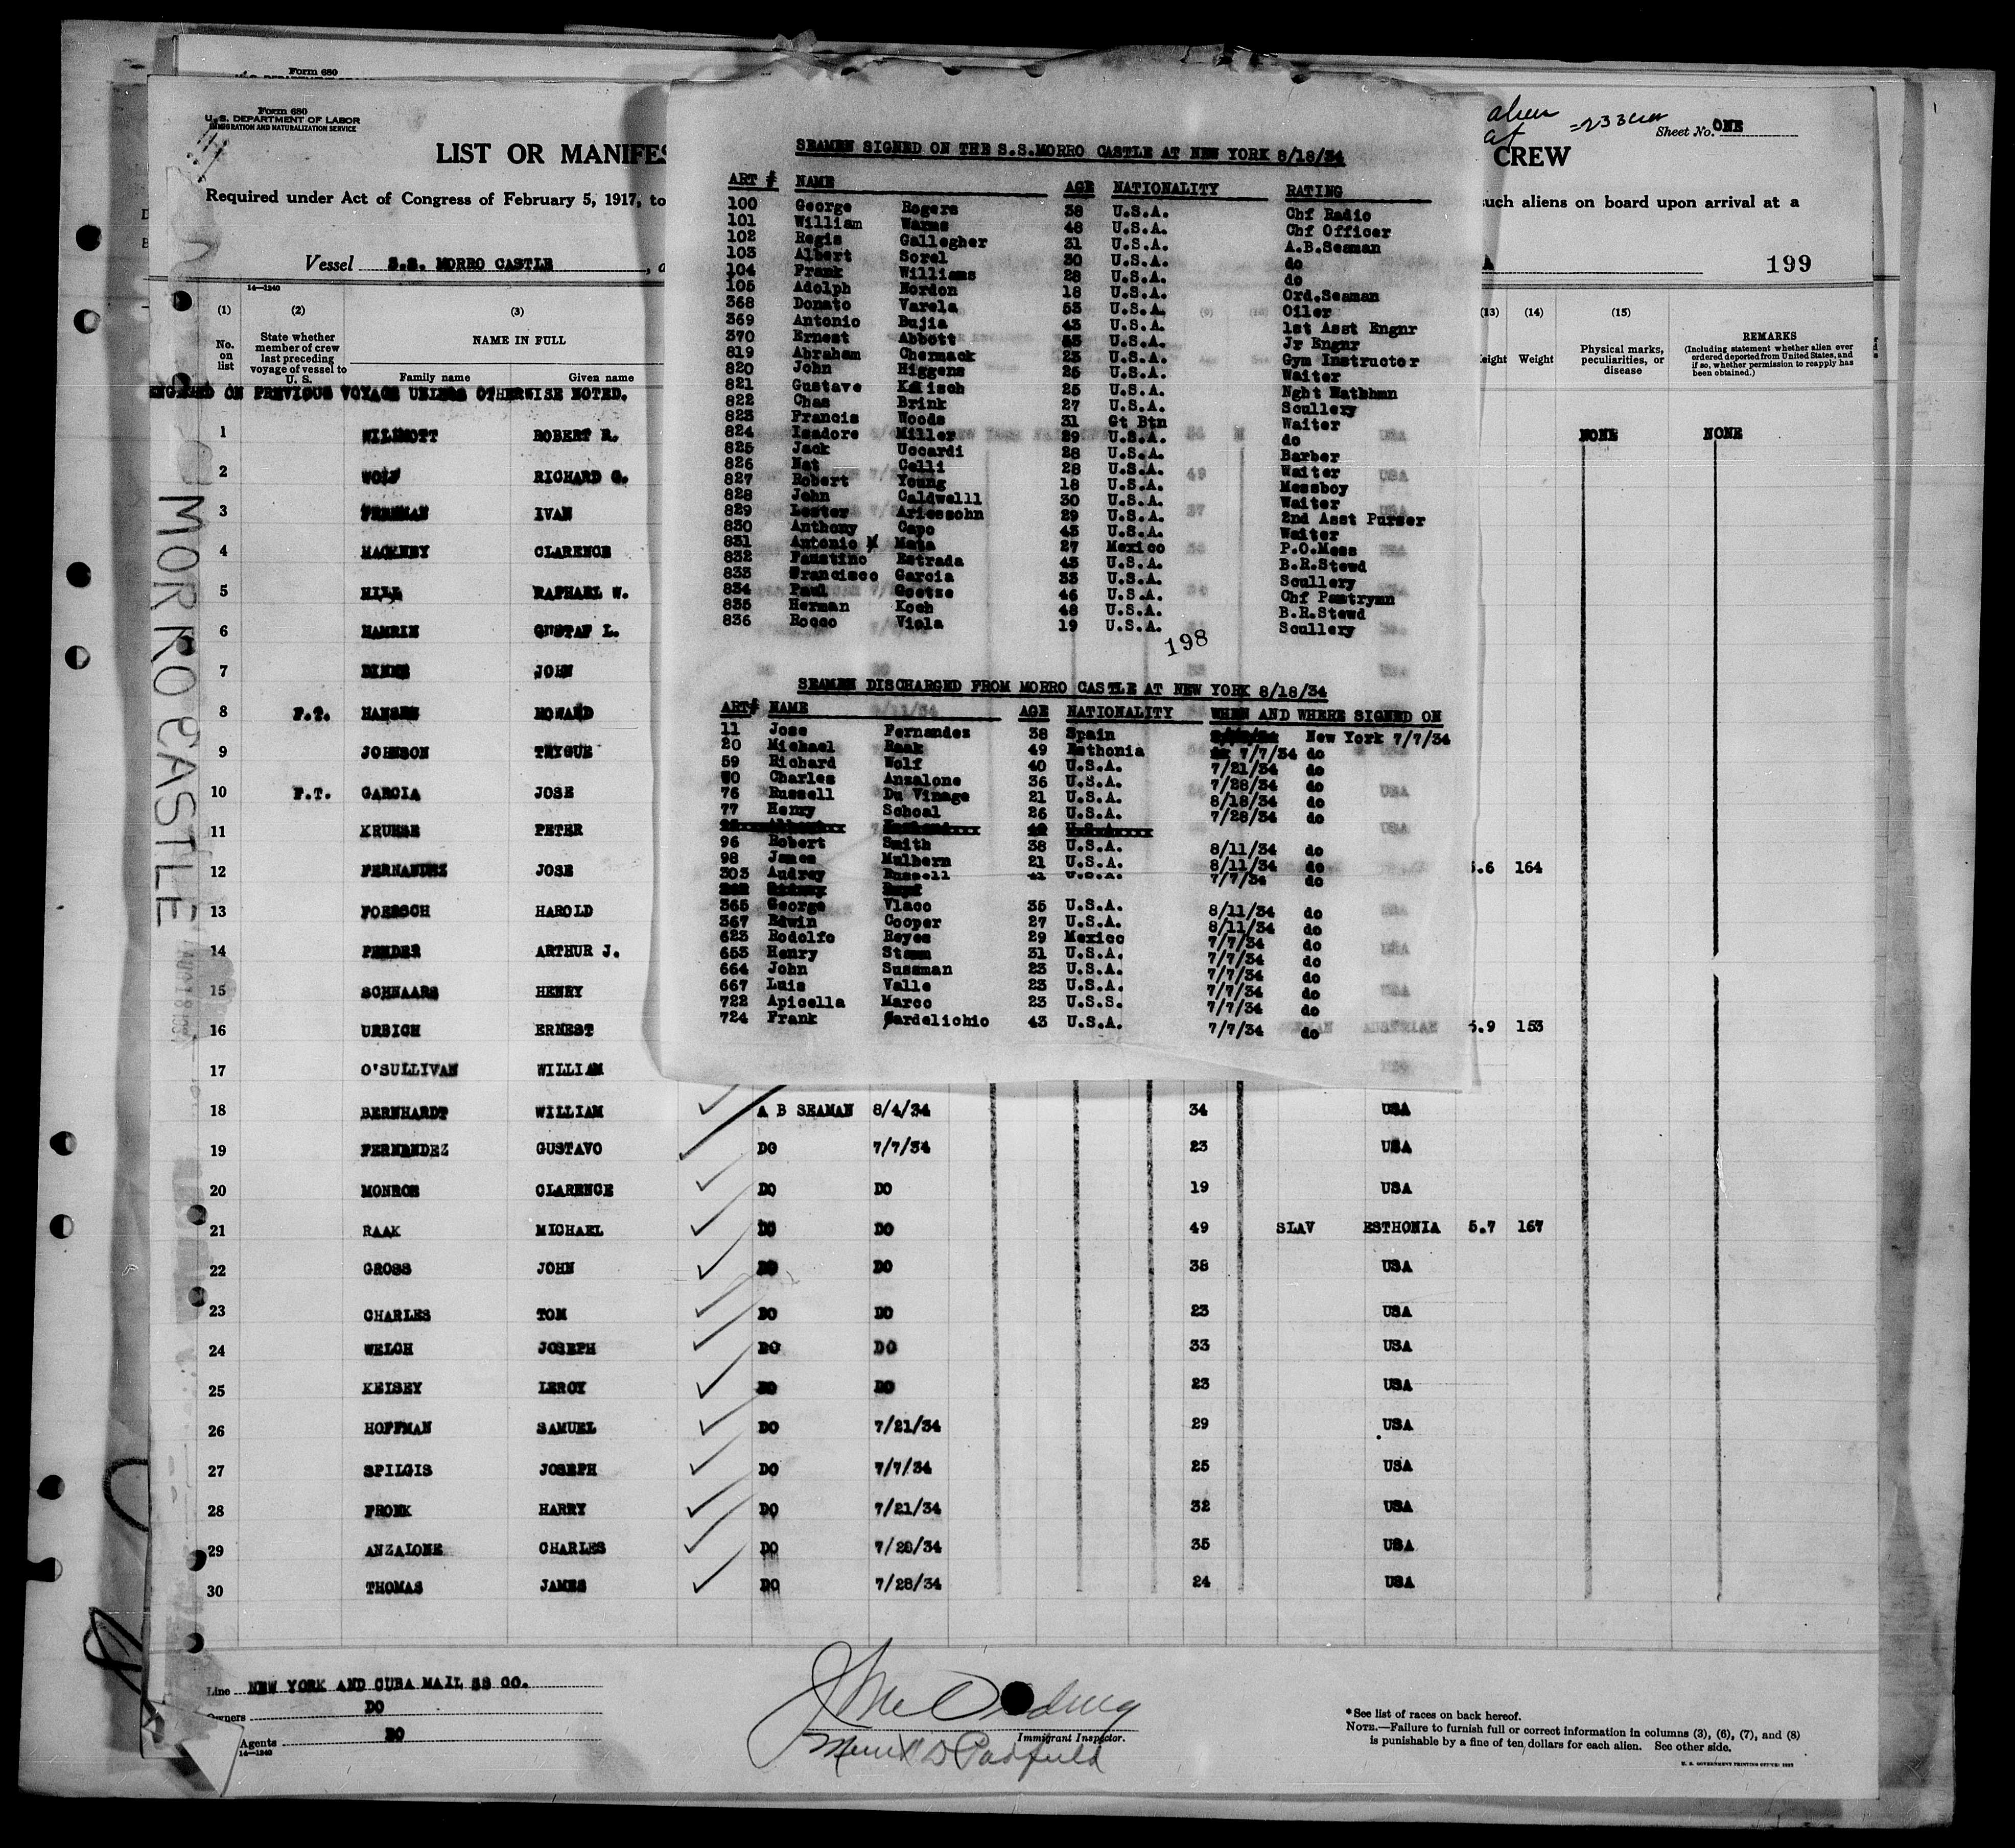 Form 680
Form 680
U. S. DEPARTMENT OF LABOR
IMMIGRATION AND NATURALIZATION SERVICE
alien
=233
Sheet No. ONE
LIST OR MANIFES
CREW
Required under Act of Congress of February 5, 1917, to
such aliens on board upon arrival at a
Vessel S.S. MORRO CASTLE
199
SEAMEN SIGNED ON THE S.S.MORRO CASTLE AT NEW YORK 8/18/34
ART # NAME AGE NATIONALITY RATING
100 George Rogers 38 U.S.A. Chf Radio
101 William Warms 48 U.S.A. Chf Officer
102 Regis Gallegher 31 U.S.A. A.B.Seaman
103 Albert Sorel 30 U.S.A. do
104 Frank Williams 28 U.S.A. do
105 Adolph Nordon 18 U.S.A. Ord.Seaman
368 Donato Varela 53 U.S.A. Oiler
369 Antonio Bujia 43 U.S.A. 1st Asst Engnr
370 Ernest Abbott U.S.A. Jr Engnr
819 Abraham Chermack 23 U.S.A. Gym Instructor
820 John Higgens 25 U.S.A. Waiter
821 Gustave Kaisch 25 U.S.A. Nght Wathhmn
822 Chas Brink 27 U.S.A. Scullery
823 Francis Woods 31 Gt Btn Waiter
824 Isadore Miller 29 U.S.A. do
825 Jack Uccardi 28 U.S.A. Barber
826 Nat Celli 28 U.S.A. Waiter
827 Robert Young 18 U.S.A. Messboy
828 John Caldwelll 30 U.S.A. Waiter
829 Lester Ariessohn 29 U.S.A. 2nd Asst Purser
830 Anthony Capo 43 U.S.A. Waiter
831 Antonio M Mata 27 Mexico P.O.Mess
832 Faustino Estrada 43 U.S.A. B.R.Stewd
833 Francisco Garcia 33 U.S.A. Scullery
834 Paul Goetze 46 U.S.A. Chf Pastrymn
835 Herman Koch 48 U.S.A. B.R.Stewd
836 Rocco Viola 19 U.S.A. Scullery
198
SEAMEN DISCHARGED FROM MORRO CASTLE AT NEW YORK 8/18/34
ART# NAME AGE NATIONALITY WHEN AND WHERE SIGNED ON
11 Jose Fernandez 38 Spain New York 7/7/34
20 Michael Raak 49 Esthonia 7/7/34 do
59 Richard Wolf 40 U.S.A. 7/21/34 do
Charles Anzalone 36 U.S.A. 7/28/34 do
76 Russell Du Vinage 21 U.S.A. 8/18/34 do
77 Henry Schoal 26 U.S.A. 7/28/34 do
96 Robert Smith 38 U.S.A. 8/11/34 do
98 James Mulhern 21 U.S.A. 8/11/34 do
303 Audrey Russell 41 U.S.A. 7/7/34 do
365 George Vlaco 35 U.S.A. 8/11/34 do
367 Edwin Cooper 27 U.S.A. 8/11/34 do
623 Rodolfo Reyes 29 Mexico 7/7/34 do
653 Henry Stamm 31 U.S.A. 7/7/34 do
664 John Sussman 23 U.S.A. 7/7/34 do
667 Luis Valle 23 U.S.A. 7/7/34 do
722 Apicella Marco 23 U.S.S. 7/7/34 do
724 Frank Sardelichio 43 U.S.A. 7/7/34 do
14—1240
(1) (2) (3) (13) (14) (15)
No. on list
State whether member of crew last preceding voyage of vessel to U. S.
NAME IN FULL
Family name Given name
Height Weight
Physical marks, peculiarities, or disease
REMARKS
(Including statement whether alien ever ordered deported from United States, and if so, whether permission to reapply has been obtained.)
ENGAGED ON PREVIOUS VOYAGE UNLESS OTHERWISE NOTED.
1 WILLMOTT ROBERT R. NONE NONE
2 WOLF RICHARD G.
3 FREEMAN IVAN
4 MACKNEY CLARENCE
5 HILL RAPHAEL W.
6 HAMRIN GUSTAF L.
7 BINNS JOHN
8 F.T. HANSEN HOWARD
9 JOHNSON TRYGUE
10 F.T. GARCIA JOSE
11 KRUESE PETER
12 FERNANDEZ JOSE 5.6 164
13 FOERSCH HAROLD
14 PENDER ARTHUR J.
15 SCHNAARS HENRY
16 URBICH ERNEST 5.9 153
17 O'SULLIVAN WILLIAM
18 BERNHARDT WILLIAM A B SEAMAN 8/4/34 34 USA
19 FERNANDEZ GUSTAVO DO 7/7/34 23 USA
20 MONROE CLARENCE DO DO 19 USA
21 RAAK MICHAEL DO DO 49 SLAV ESTHONIA 5.7 167
22 GROSS JOHN DO DO 38 USA
23 CHARLES TOM DO DO 23 USA
24 WELCH JOSEPH DO DO 33 USA
25 KEISEY LEROY DO DO 23 USA
26 HOFFMAN SAMUEL DO 7/21/34 29 USA
27 SPILGIS JOSEPH DO 7/7/34 25 USA
28 FRONK HARRY DO 7/21/34 32 USA
29 ANZALONE CHARLES DO 7/28/34 35 USA
30 THOMAS JAMES DO 7/28/34 24 USA
MORRO CASTLE
Line NEW YORK AND CUBA MAIL SS CO.
Owners DO
Agents DO
14—1240
Immigrant Inspector.
*See list of races on back hereof.
NOTE.—Failure to furnish full or correct information in columns (3), (6), (7), and (8)
is punishable by a fine of ten dollars for each alien. See other side.
U. S. GOVERNMENT PRINTING OFFICE: 1932